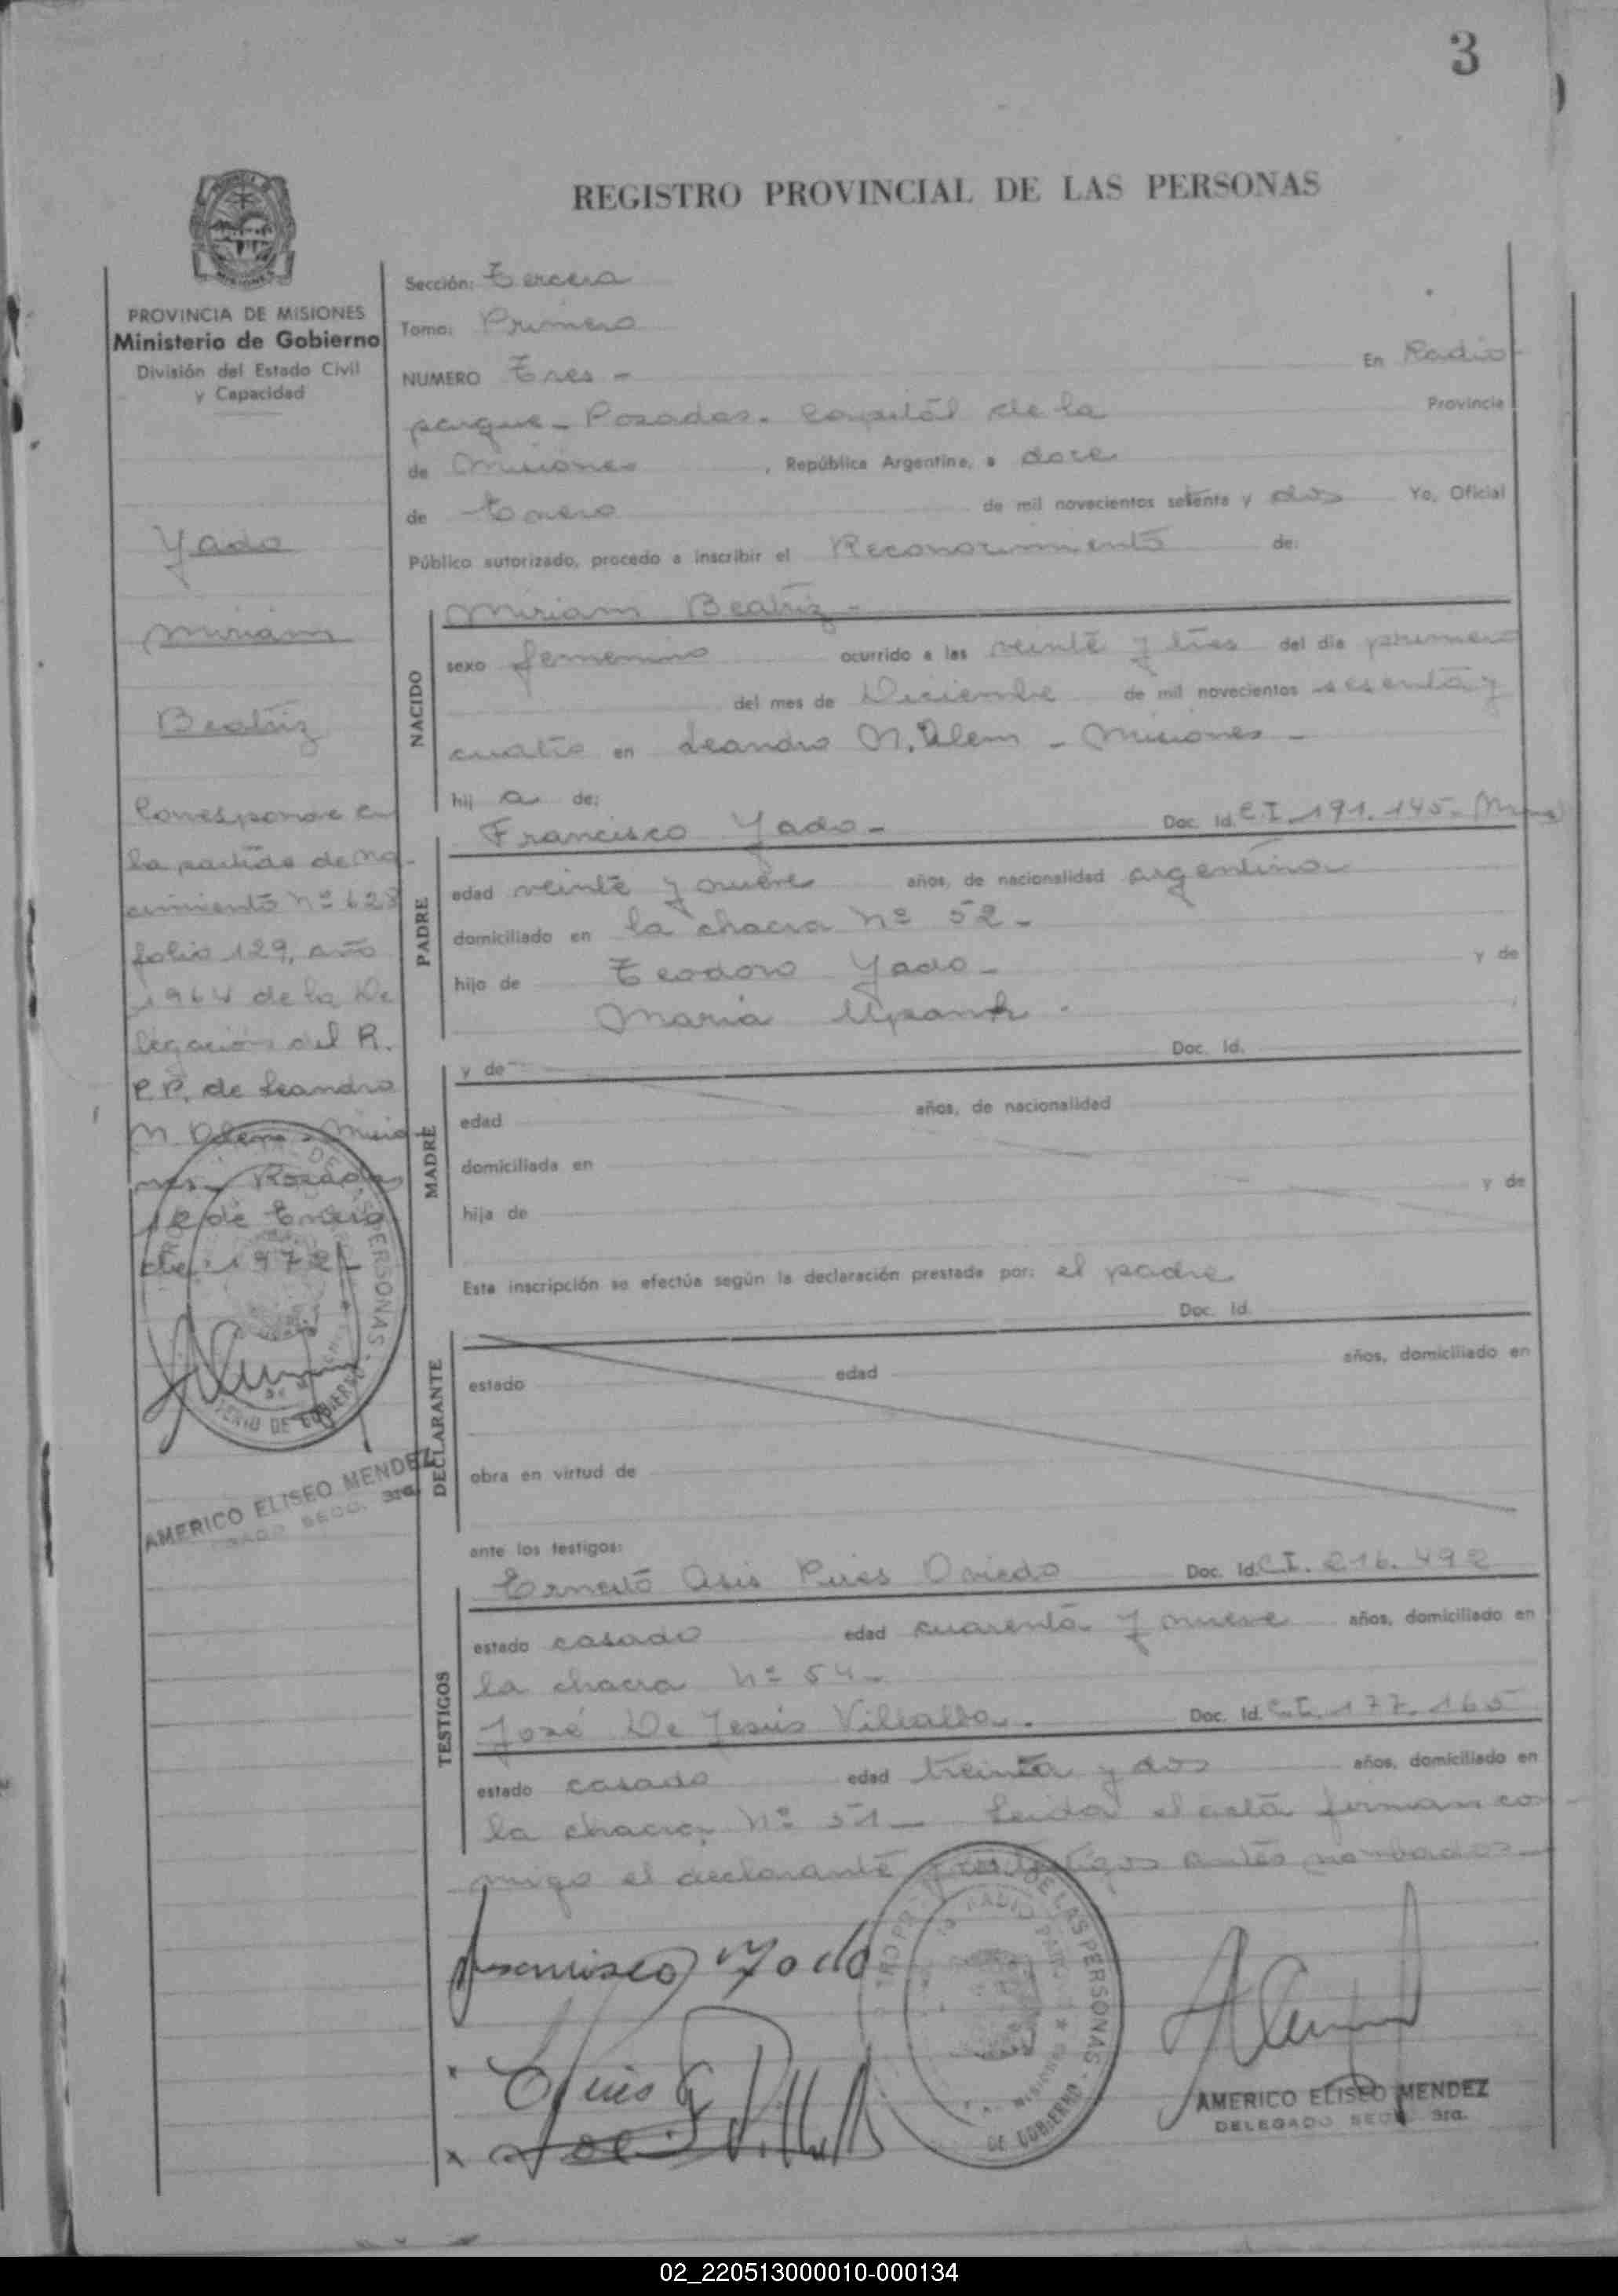 3
REGISTRO PROVINCIAL DE LAS PERSONAS
PROVINCIA DE MISIONES
Ministerio de Gobierno
División del Estado Civil
y Capacidad
Yado
Miriam
Beatriz
Corresponde en
la partida de na-
cimiento Nº 628
folio 129, año
1964 de la De
legación del R.
P.P. de Leandro
N. Alem - Misio
nes - Posadas
12 de Enero
de 1972 -
AMERICO ELISEO MENDEZ
SECC. 3ra.
Sección: Tercera
Tomo: Primero
NUMERO Tres - En Radio
parque - Posadas. Capital de la Provincia
de Misiones, República Argentina, a doce
de Enero de mil novecientos setenta y dos Yo, Oficial
Público autorizado, procedo a inscribir el Reconocimiento de:
NACIDO
Miriam Beatriz -
sexo femenino ocurrido a las veinte y tres del día primero
del mes de Diciembre de mil novecientos sesenta y
cuatro en Leandro N. Alem - Misiones -
hij a de:
PADRE
Francisco Yado - Doc. Id. C.I. 191.145 -
edad veinte y nueve años, de nacionalidad argentina
domiciliado en la chacra Nº 52 -
hijo de Teodoro Yado - y de
Maria
MADRE
y de Doc. Id.
edad años, de nacionalidad
domiciliada en
hija de y de
Esta inscripción se efectúa según la declaración prestada por: el padre
DECLARANTE
Doc. Id.
estado edad años, domiciliado en
obra en virtud de
ante los testigos:
TESTIGOS
Ernesto Asis Pires Oviedo Doc. Id. C.I. 216.492
estado casado edad cuarenta y nueve años, domiciliado en
la chacra Nº 54 -
José De Jesús Villalba. Doc. Id. C.I. 177.165
estado casado edad treinta y dos años, domiciliado en
la chacra Nº 51 - Leida el acta firman con
migo el declarante y los testigos antes nombrados -
Francisco Yado
DE LAS PERSONAS
DE GOBIERNO
AMERICO ELISEO MENDEZ
DELEGADO SECC. 3ra.
02_220513000010-000134